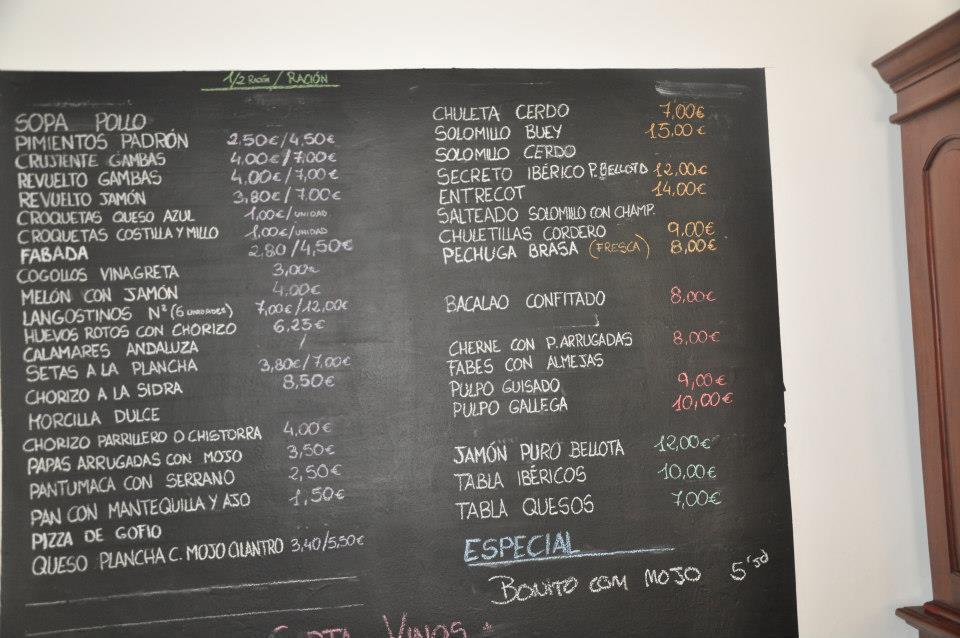 1/2 RACIÓN / RACIÓN
SOPA POLLO
PIMIENTOS PADRÓN 2,50€/4,50€
CRUJIENTE GAMBAS 4,00€/7,00€
REVUELTO GAMBAS 4,00€/7,00€
REVUELTO JAMÓN 3,80€/7.00€
CROQUETAS QUESO AZUL 1,00€/UNIDAD
CROQUETAS COSTILLA Y MILLO 1,00€/UNIDAD
FABADA 2,80/4,50€
COGOLLOS VINAGRETA 3,00€
MELON CON JAMÓN 4,00€
LANGOSTINOS Nº2 (6 UNIDADES) 7,00€/12,00€
HUEVOS ROTOS CON CHORIZO 6.25€
CALAMARES ANDALUZA /
SETAS A LA PLANCHA 3,80€/7,00€
CHORIZO A LA SIDRA 8,50€
MORCILLA DULCE
CHORIZO PARRILLERO O CHISTORRA 4,00€
PAPAS ARRUGADAS CON MOJO 3,50€
PANTUMACA CON SERRANO 2,50€
PAN CON MANTEQUILLA Y AJO 1,50€
PIZZA DE GOFIO
QUESO PLANCHA C. MOJO CILANTRO 3,40/5,50€
CHULETA CERDO 7,00€
SOLOMILLO BUEY 15,00€
SOLOMILLO CERDO
SECRETO IBÉRICO P. BELLOTA 12,00€
ENTRECOT 14,00€
SALTEADO SOLOMILLO CON CHAMP.
CHULETILLAS CORDERO 9,00€
PECHUGA BRASA (FRESCA) 8,00€
BACALAO CONFITADO 8,00€
CHERNE CON P. ARRUGADAS 8,00€
FABES CON ALMEJAS
PULPO GUISADO 9,00€
PULPO GALLEGA 10,00€
JAMÓN PURO BELLOTA 12,00€
TABLA IBÉRICOS 10,00€
TABLA QUESOS 7,00€
ESPECIAL
BONITO COM MOJO 5'50
VINOS